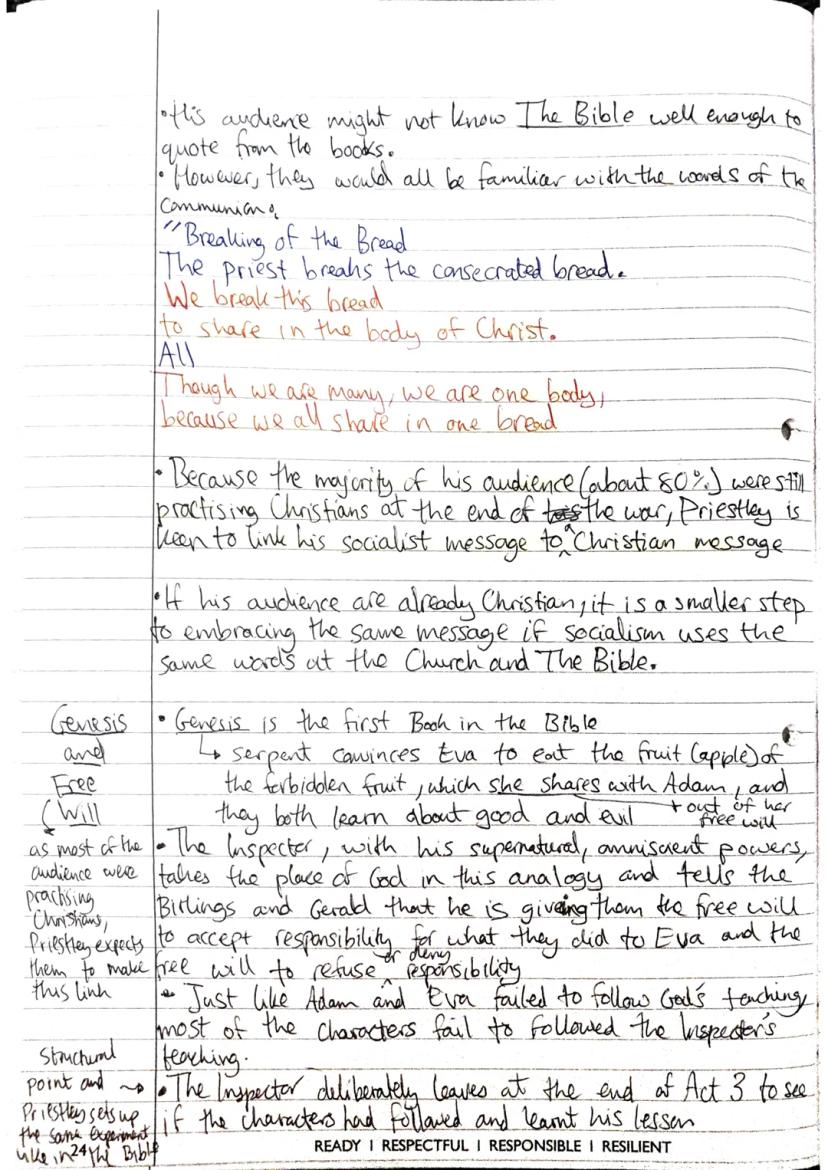 •His audience might not know The Bible well enough to
quote from the books.
• However, they would all be familiar with the words of the
Communion.
"Breaking of the Bread
The priest breaks the consecrated bread.
We break this bread
to share in the body of Christ.
All
Though we are many, we are one body,
because we all share in one bread
• Because the majority of his audience (about 80%) were still
practising Christians at the end of the war, Priestley is
keen to link his socialist message to a Christian message
•If his audience are already Christian, it is a smaller step
to embracing the same message if socialism uses the
same words at the Church and The Bible.
Genesis
and
Free
Will
as most of the
audience were
practising
Christians,
Priestley expects
them to make
this link
• Genesis is the first Book in the Bible
↳ serpent convinces Eva to eat the fruit (apple) of
the forbidden fruit, which she shares with Adam, and
they both learn about good and evil → out of her
free will
• The Inspector, with his supernatural, omniscient powers,
takes the place of God in this analogy and tells the
Birlings and Gerald that he is giving them the free will
to accept responsibility for what they did to Eva and the
free will to refuse or deny responsibility
• Just like Adam and Eva failed to follow God's teaching,
most of the characters fail to followed the Inspector's
teaching.
Structural
point and ⇝
Priestley sets up
the same experiment
like in the Bible
• The Inspector deliberately leaves at the end of Act 3 to see
if the characters had followed and learnt his lesson
24
READY | RESPECTFUL | RESPONSIBLE | RESILIENT